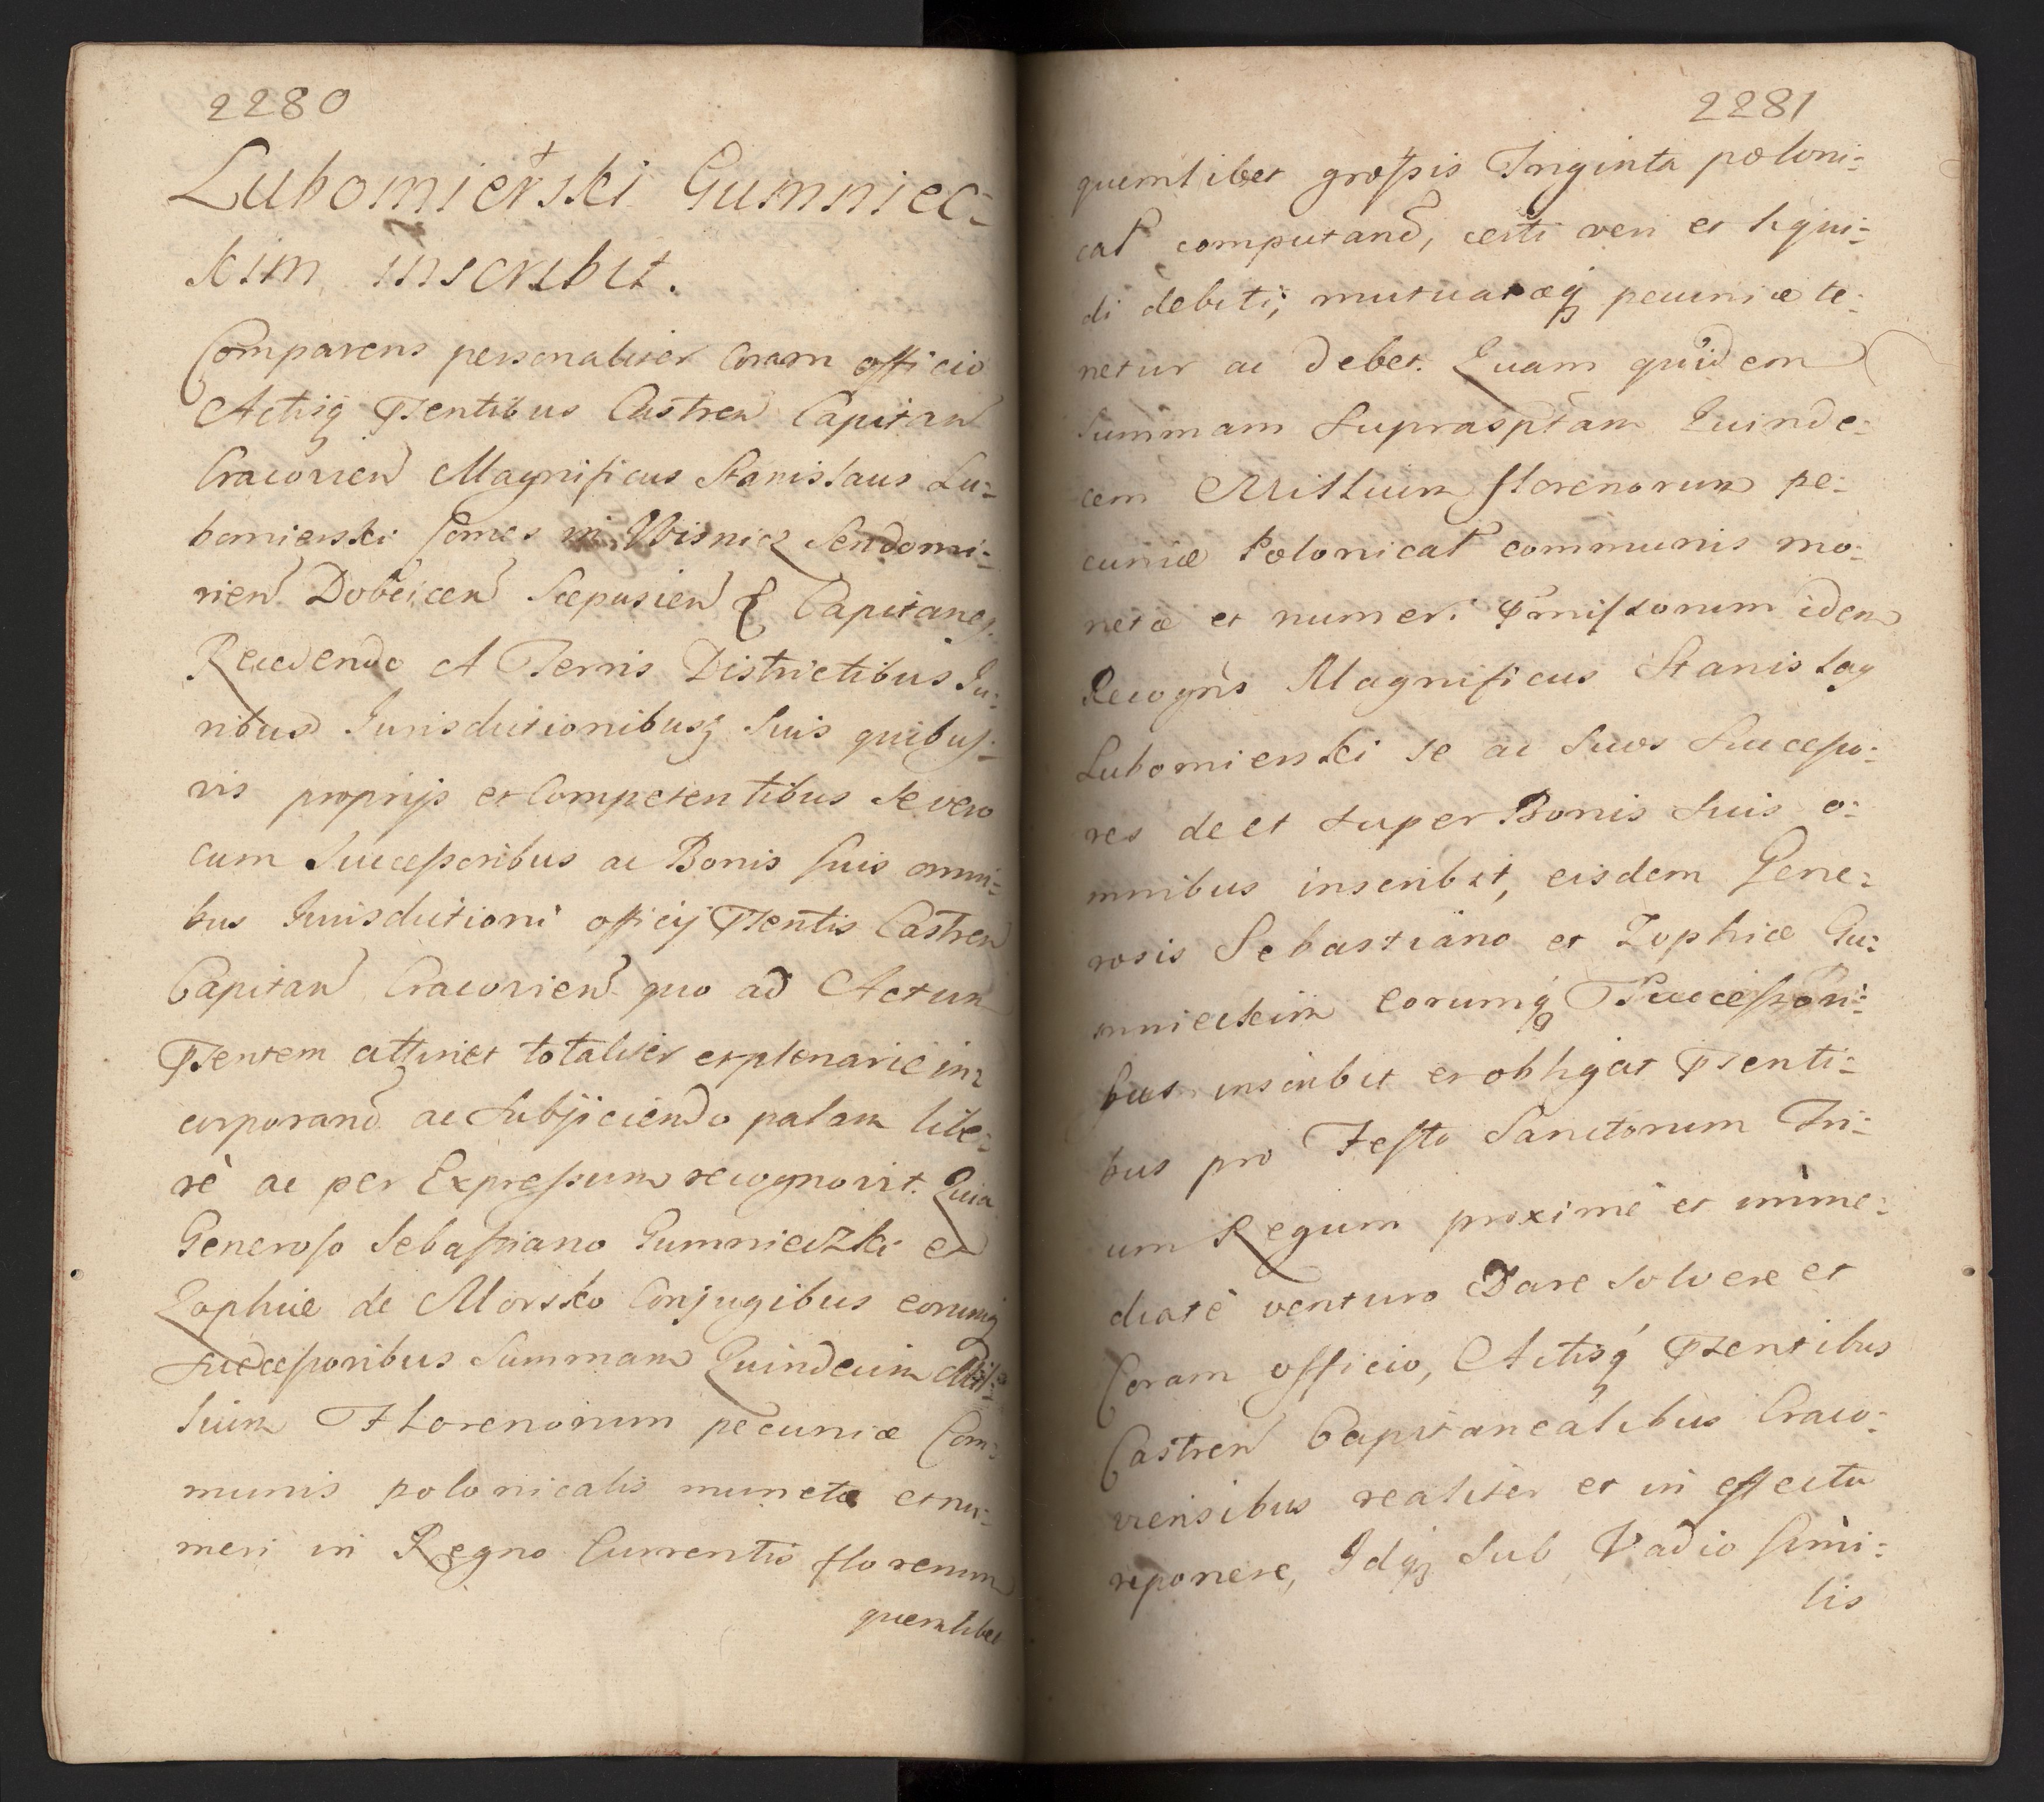 2280
Lubomierski Gumniec=
kim inscribit.
Comparens personaliter Coram officio
Actisq Psentibus Castren Capitan
Cracovien Magnificus Stanislaus Lu=
bomierski Comes in Wisnicz Sendomi=
rien Dobcicen Scepusien & Capitaneq
Recedendo A Terris Districtibus Ju=
ribus Jurisdictionibusq Suis quibus=
vis proprijs et Competentibus Se vero
cum Successoribus ac Bonis suis omni=
bus Jurisdictioni officij Psentis Castren
Capitan Cracovien quo ad Actum
Psentem attinet totaliter et plenarie in=
corporand ac Subjiciendo palam libe=
rè ac per Expressum recognovit. Quia
Generoso Sebastiano Gumnieczki et
Zophiæ de Morsko Conjugibus eorumq
Successoribus Summam Quindecim Mil=
lium Florenorum pecuniæ Com=
munis polonicalis munetæ et nu=
meri in Regno Currentis florenum
quemlibet
2281
quemlibet grossis Triginta poloni=
cal computand, certi veri et liqui=
di debiti, mutuatæq pecuniæ te=
netur ac debet. Quam quidem
Summam Suprasptam Quinde=
cem Millium florenorum pe=
cuniæ Polonical communis mo=
netæ et numeri Pmissorum idem
Recogns Magnificus Stanislaq
Lubomierski se ac Suos Successo=
res de et super Bonis Suis o=
mnibus inscribit, eisdem Gene=
rosis Sebastiano et Zophiæ Gu=
mnieckim eorumq Successori=
bus inscribit et obligat Psenti=
bus pro Festo Sanctorum Tri=
um Regum proximè et imme=
diatè venturo Dare Solvere et
Coram officio, Actisq Psentibus
Castren Capitanealibus Craco=
viensibus realiter et in effectu
reponere, Idq Sub Vadio simi=
lis